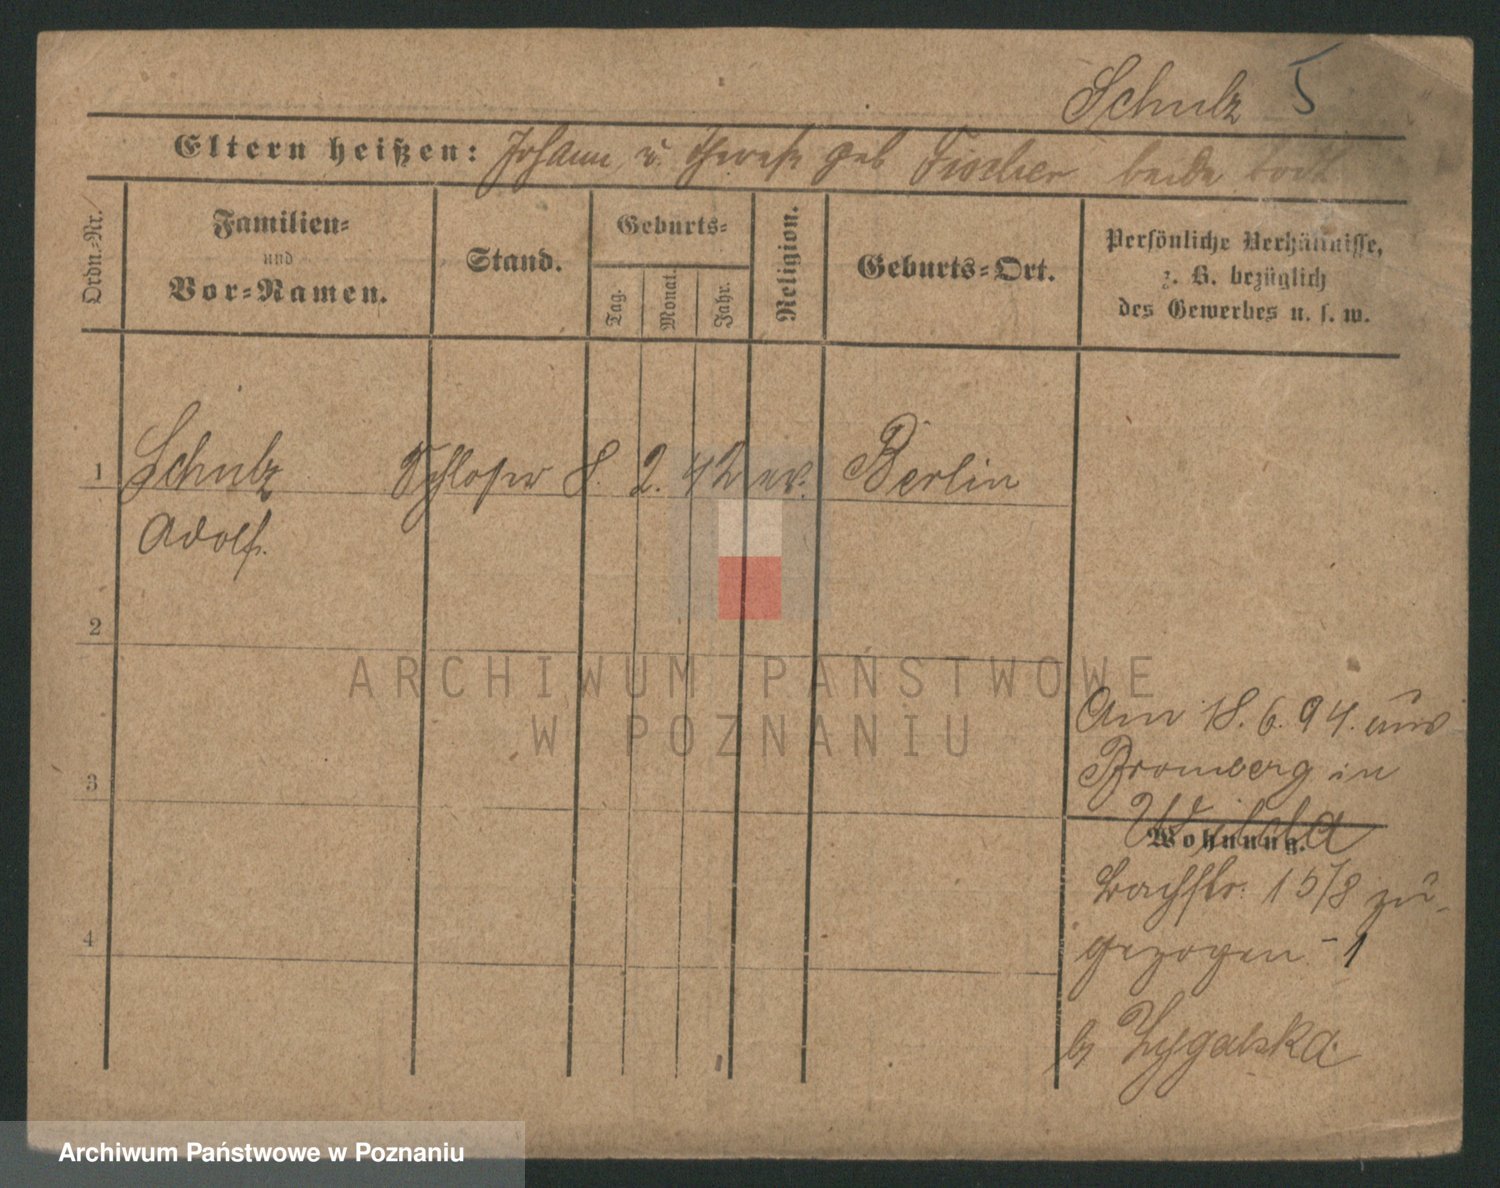 Schulz 5
Eltern heißen: Johann u. Therese geb Fischer beide todt
Ordn.-Nr.
Familien-
und
Vor-Namen.
Stand.
Geburts-
Tag.
Monat.
Jahr.
Religion.
Geburts-Ort.
Persönliche Verhältnisse,
z. B. bezüglich
des Gewerbes u. s. w.
1 Schulz Schlosser 8. 2. 42 ev. Berlin
Adolf.
2
ARCHIWUM PAŃSTWOWE
W POZNANIU
Am 18. 6. 94. aus
3 Bromberg in
Wilda
Wohnung.
Bachstr. 15/8 zu-
4 gezogen - 1
b Zygalska
Archiwum Państwowe w Poznaniu